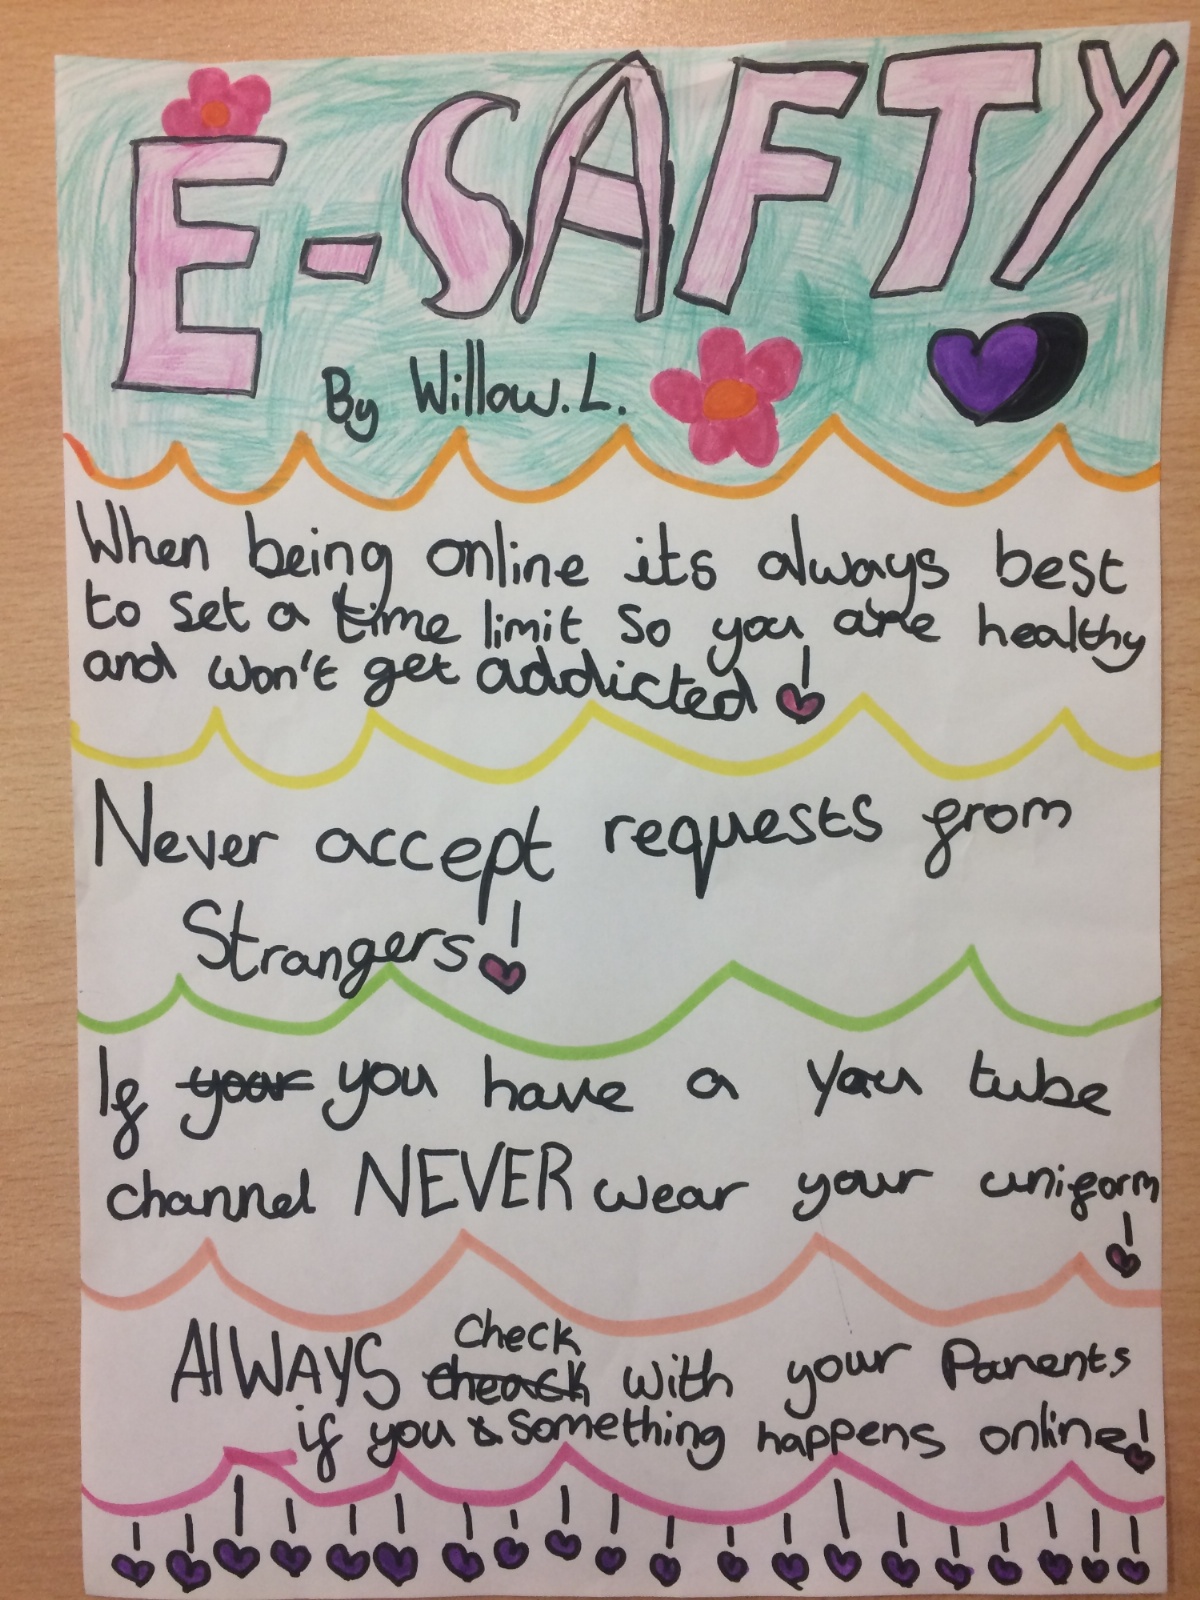 E-SAFTY
By Willow.L.
When being online its always best
to set a time limit so you are healthy
and won't get addicted!
Never accept requests from
Strangers!
If your you have a You tube
channel NEVER wear your uniform!
AlWAYS check cheack with your Parents
if you & something happens online!